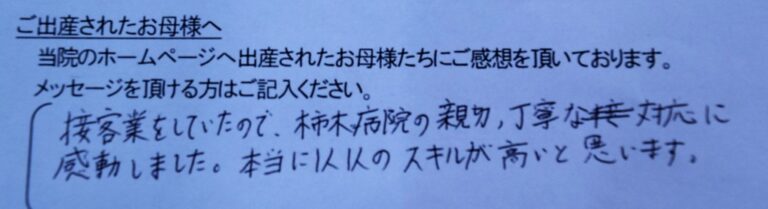 ご出産されたお母様へ
当院のホームページへ出産されたお母様たちにご感想を頂いております。
メッセージを頂ける方はご記入ください。
接客業をしていたので、柿木病院の親切、丁寧な対応に
感動しました。本当に1人1人のスキルが高いと思います。